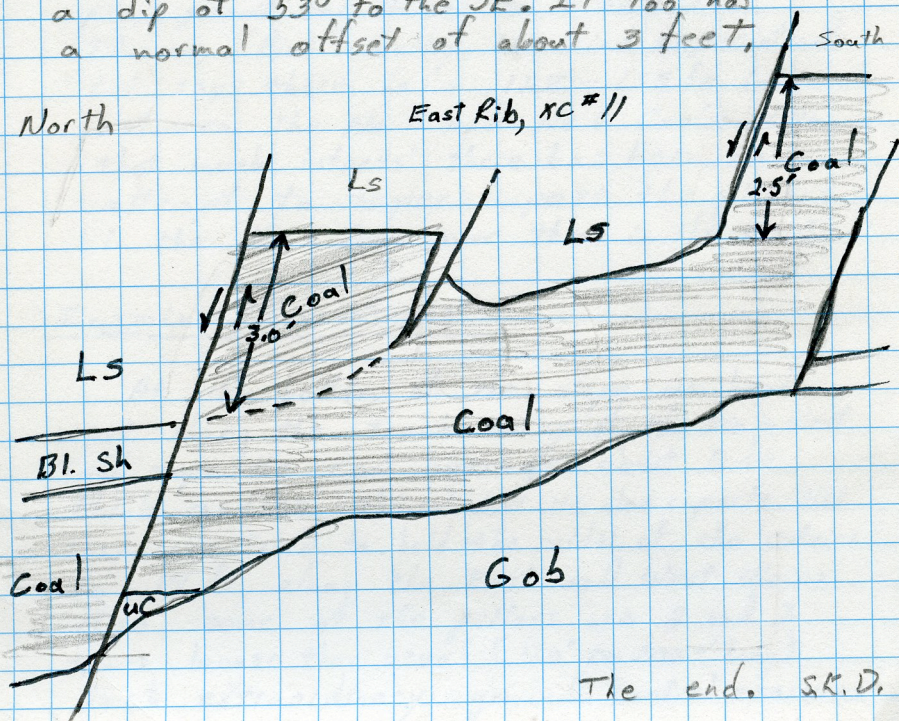 a dip of 53° to the SE. It too has
a normal offset of about 3 feet.
South
North
East Rib, XC #11
Ls
Coal
2.5'
Ls
Coal
3.0'
Ls
Bl. Sh
Coal
Coal
Gob
uC
The end. S.K.D.